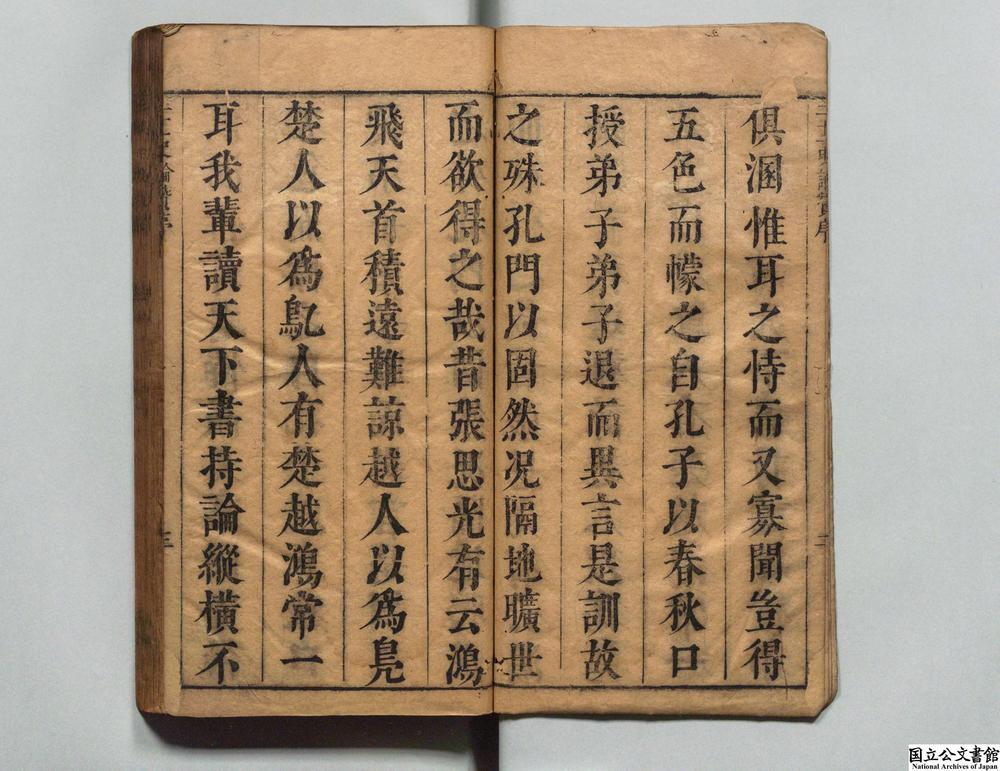 俱溷惟耳之恃而又寡聞豈得
五色而幪之自孔子以春秋口
授弟子弟子退而異言是訓故
之殊孔門以固然况隔地曠世
而欲得之哉昔張思光有云鴻
飛天首積遠難諒越人以為鳧
楚人以為鳦人有楚越鴻常一
耳我輩讀天下書持論縱橫不
三
三
国立公文書館
National Archives of Japan